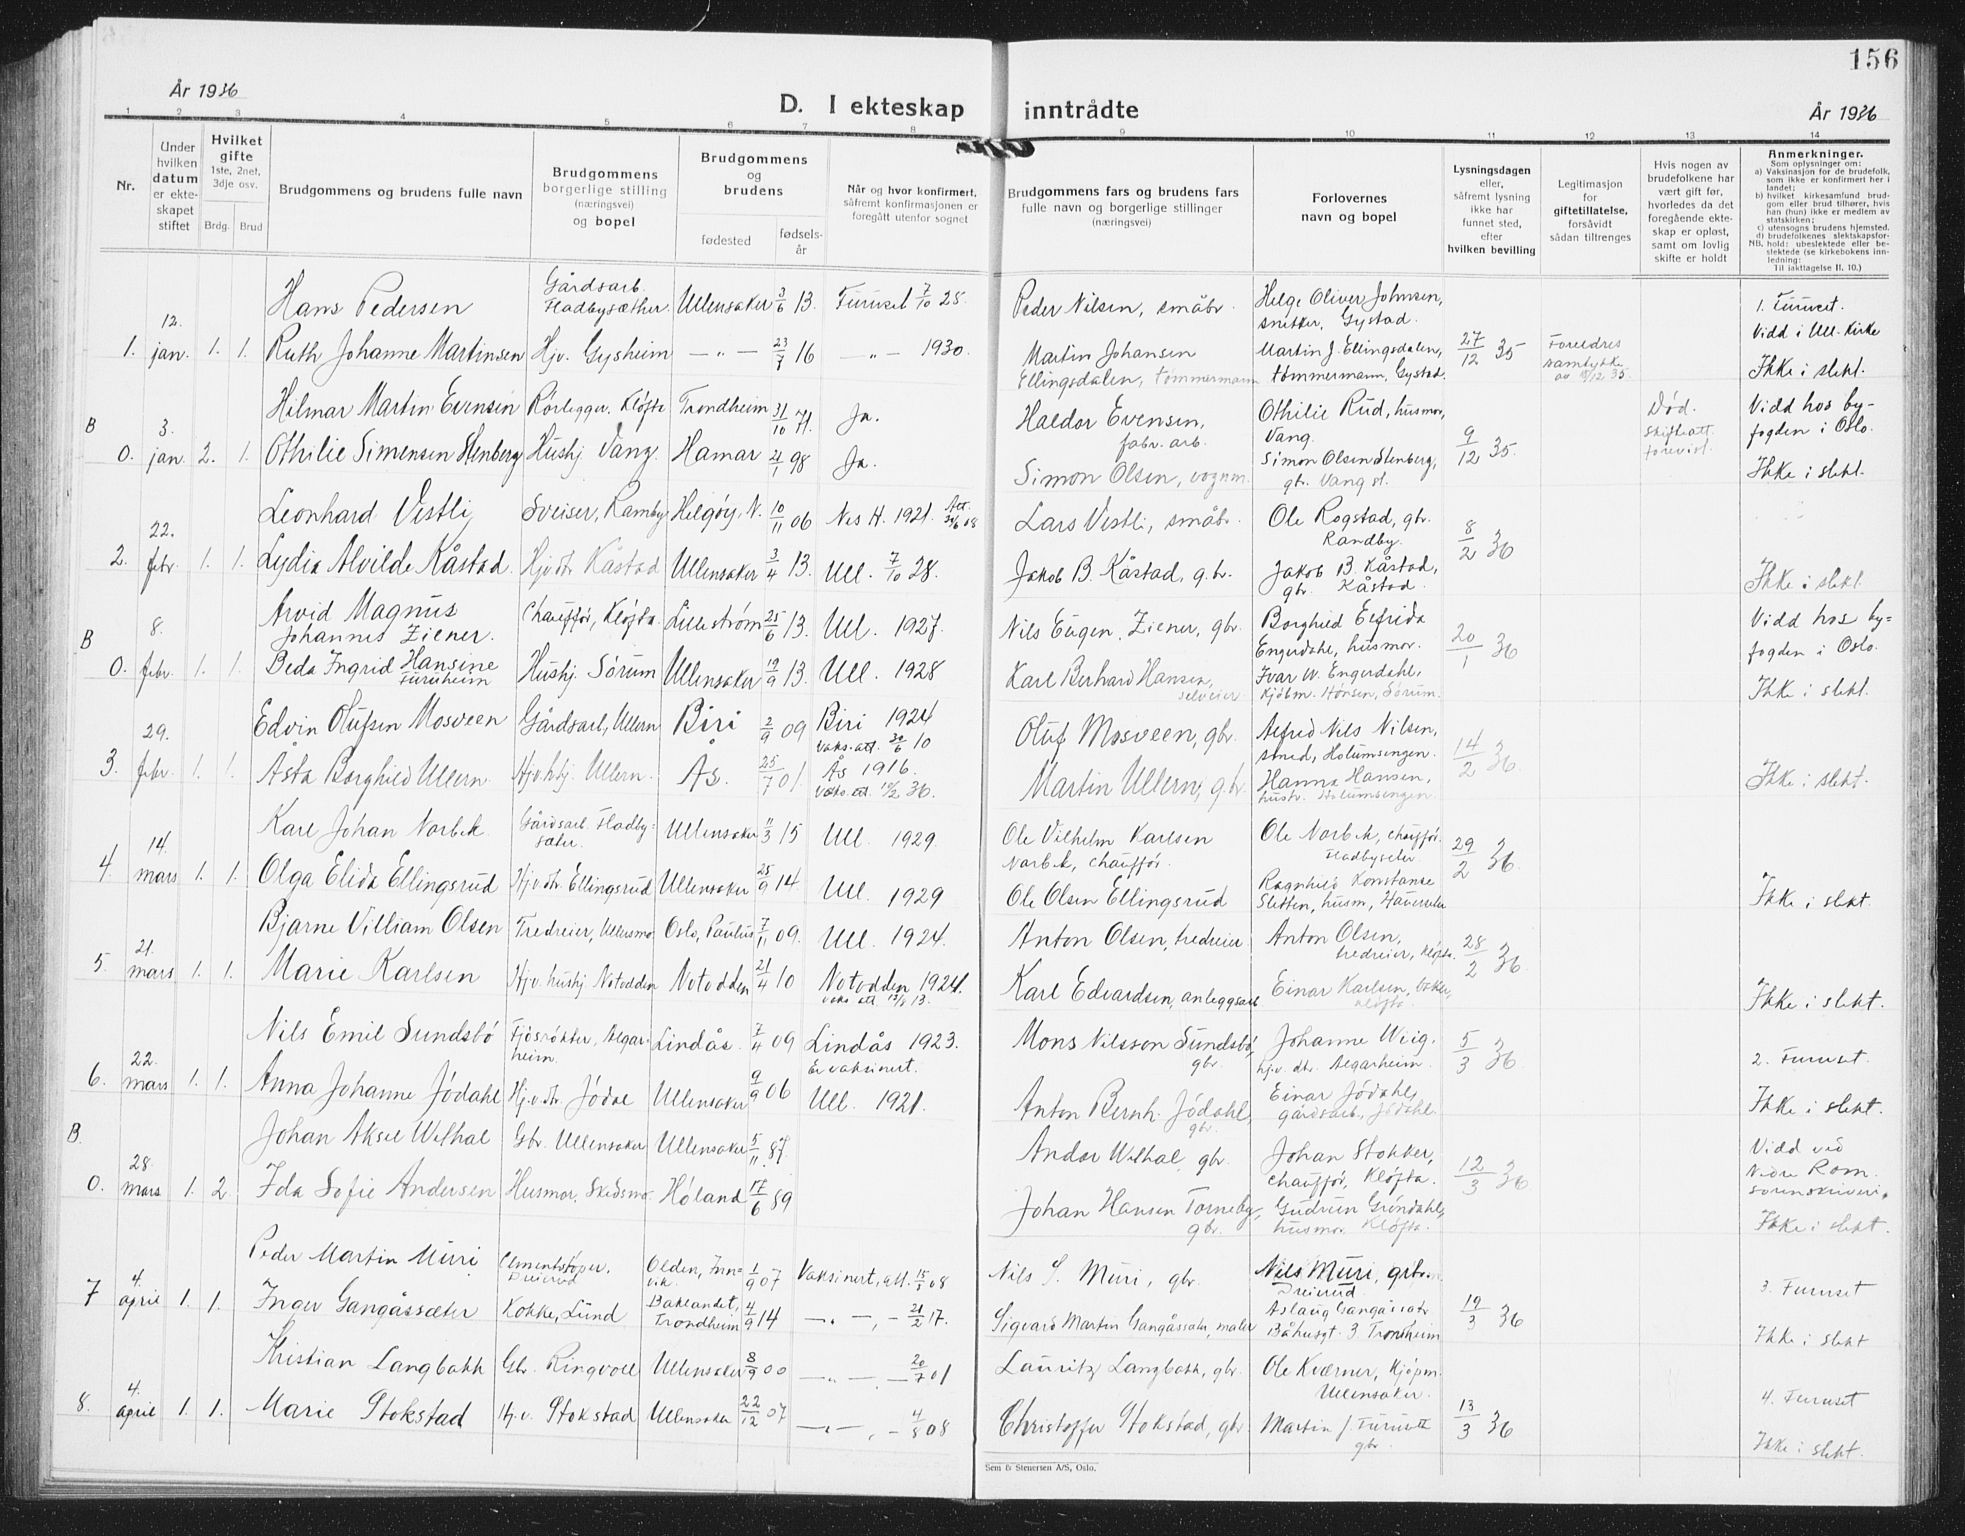 156
År 1936
D. I ekteskap inntrådte
År 1936
1 2 3 4 5 6 7 8 9 10 11 12 13 14
Nr.
Under hvilken datum er ekteskapet stiftet
Hvilket gifte
1ste, 2net, 3dje osv.
Brdg. Brud
Brudgommens og brudens fulle navn
Brudgommens borgerlige stilling (næringsvei) og bopel
Brudgommens og brudens
fødested
fødselsår
Når og hvor konfirmert, såfremt konfirmasjonen er foregått utenfor sognet
Brudgommens fars og brudens fars fulle navn og borgerlige stillinger (næringsvei)
Forlovernes navn og bopel
Lysningsdagen eller, såfremt lysning ikke har funnet sted, efter hvilken bevilling
Legitimasjon for giftetillatelse, forsåvidt sådan tiltrenges
Hvis nogen av brudefolkene har vært gift før, hvorledes da det foregående ekteskap er opløst, samt om lovlig skifte er holdt
Anmerkninger.
Som oplysninger om:
a) Vaksinasjon for de brudefolk, som ikke er konfirmert her i landet;
b) hvilket kirkesamfund brudgom eller brud tilhører, hvis han (hun) ikke er medlem av statskirken;
c) utensogns brudens hjemsted.
d) brudefolkenes slektskapsforhold: ubeslektede eller beslektede (se kirkebokens innledning:
NB.
Til iakttagelse II. 10.)
Hans Pedersen Gårdsarb. Fladbysæther. Ullensaker 3/6 13. Furuset 7/10 28. Peder Nilsen, småbr. Helge Oliver Johnsen, snitker, Gystad. 1. Furuset. Vidd i Ull. Kirke
1. 12. jan. 1. 1. Ruth Johanne Martinsen Hjv. Gysheim — „ — 23/7 16 — „ — 1930. Martin Johansen Ellingsdalen, tømmermann Martin J. Ellingsdalen, tømmermann, Gystad. 27/12 35 Foreldres samtykke av 18/12 35. Ikke i slekt.
B Hilmar Martin Evensen Rørlegger. Kløfta Trondheim 31/10 71. Ja. Haldor Evensen, fabr. arb. Othilie Rud, husmor, Vang. Død. Skifteatt. forevist. Vidd hos byfogden i Oslo.
0. 3. jan. 2. 1. Othilie Simensen Stenberg Hushj Vang. Hamar 21/1 98 Ja. Simon Olsen, vognm. Simon Olsen Stenberg, gbr. Vang st. 9/12 35. Ikke i slekt.
Leonhard Vestli Sveiser, Ramby Helgøy, N. 10/11 06 Nes H. 1921. Att. Lars Vestli, småbr. Ole Rogstad, gbr. Randby.
2. 22. febr. 1. 1. Lydia Alvilde Kåstad. Hjv. dtr. Kåstad Ullensaker 3/4 13. Ull. 7/10 28. Jakob B. Kåstad, g.br. Jakob B. Kåstad, gbr. Kåstad. 8/2 36 Ikke i slekt.
B Arvid Magnus Johannes Ziener. Chauffør, Kløfta. Lillestrøm 25/6 13. Ull. 1927. Nils Eugen Ziener, gbr. Borghild Elfrida Engerdahl, husmor. Vidd hos byfogden i Oslo.
0. 8. febr. 1. 1. Beda Ingrid Hansine Furuheim Hushj. Sørum Ullensaker 19/9 13. Ull. 1928 Karl Berhard Hansen, selveier Ivar W. Engerdahl, Kjøbm. Hønsen, Sørum. 20/1 36 Ikke i slekt.
Edvin Olufsen Mosveen Gårdsarb, Ullern Biri 2/9 09 Biri 1924 Vaks. att. 30/6 10 Oluf Mosveen, gbr. Alfred Nils Nilsen, smed, Holumsengen.
3. 29. febr. 1. 1. Åsta Borghild Ullern Hjv. hj. Ullern. Ås. 25/7 01. Ås 1916. Vaks. att. 36. Martin Ullern, g.br. Hanna Hansen, hustr. Holumsengen. 14/2 36. Ikke i slekt.
Karl Johan Norbek Gårdsarb. Fladbysæter. Ullensaker 11/3 15 Ull. 1929. Ole Vilhelm Karlsen Norbek, chauffør. Ole Norbek, chauffør. Fladbyseter
4. 14. mars 1. 1. Olga Elida Ellingsrud Hjv. dtr. Ellingsrud Ullensaker 25/9 14. Ull. 1929 Ole Olsen Ellingsrud Ragnhild Konstanse Sletten, husm, 29/2 36. Ikke i slekt.
Bjarne Villiam Olsen Tredreier, Ullensmo. Oslo, Paulus 7/11 09. Ull. 1924. Anton Olsen, tredreier Anton Olsen, tredreier, Kløfta.
5. 21. mars 1. 1. Marie Karlsen Hjv. hushj Notodden Notodden 21/4 10 Notodden 1924. Vaks. att. Karl Edvardsen, anleggsarb Einar Karlsen, baker, Kløfta. 28/2 36. Ikke i slekt.
Nils Emil Sundsbø Fjøsrøkter, Algarheim. Lindås. 7/4 09 Lindås 1923. Er vaksinert. Mons Nilsson Sundsbø, gbr. Johanne Wiig. hj.v. dtr. Algarheim. 5/3 36 2. Furuset.
6. 22. mars 1. 1. Anna Johanne Jødahl Hj.v. dtr. Jødal Ullensaker 9/9 06 Ull. 1921. Anton Bernh. Jødahl, gbr. Einar Jødahl, gårdsarb, Jødahl. Ikke i slekt.
B. Johan Aksel Wilhal Gbr. Ullensaker Ullensaker 5/11 87. Andor Wilhal, gbr. Johan Stokker, chauffør, Kløfta. Vidd ved Nedre Rom. sorenskriveri.
0. 28. mars 1. 2. Ida Sofie Andersen Husmor, Skedsmo. Høland 17/6 89 Johan Hansen Torneby, gbr. Gudrun Grøndahl, husmor, Kløfta. 12/3 36 Ikke i slekt.
Peder Martin Muri Cementstøper. Olden, Innvik. 1/9 07 Vaksinert, att. 08 Nils S. Muri, gbr. Nils Muri, 3. Furuset
7 4. april 1. 1. Inger Gangåssæter Kokke, Lund Baklandet, Trondheim 4/9 14 — „ —, — 21/2 17. Sigvard Martin Gangåssæter, maler Aslaug Gangåssæter Båhusgt. 3 Trondheim 19/3 36 Ikke i slekt
Kristian Langbakk Gbr. Ringvoll Ullensaker 8/9 00 — „ —, — 20/7 01 Lauritz Langbakk, gbr. Ole Kværner, Kjøpm. Ullensaker. 4. Furuset
8. 4. april 1. 1. Marie Stokstad Hj.v. Stokstad Ullensaker 22/12 07 — „ —, — 08 Christoffer Stokstad, gbr Martin J. Furuseth gbr. 13/3 36 Ikke i slekt.
Sem & Stenersen A/S, Oslo.